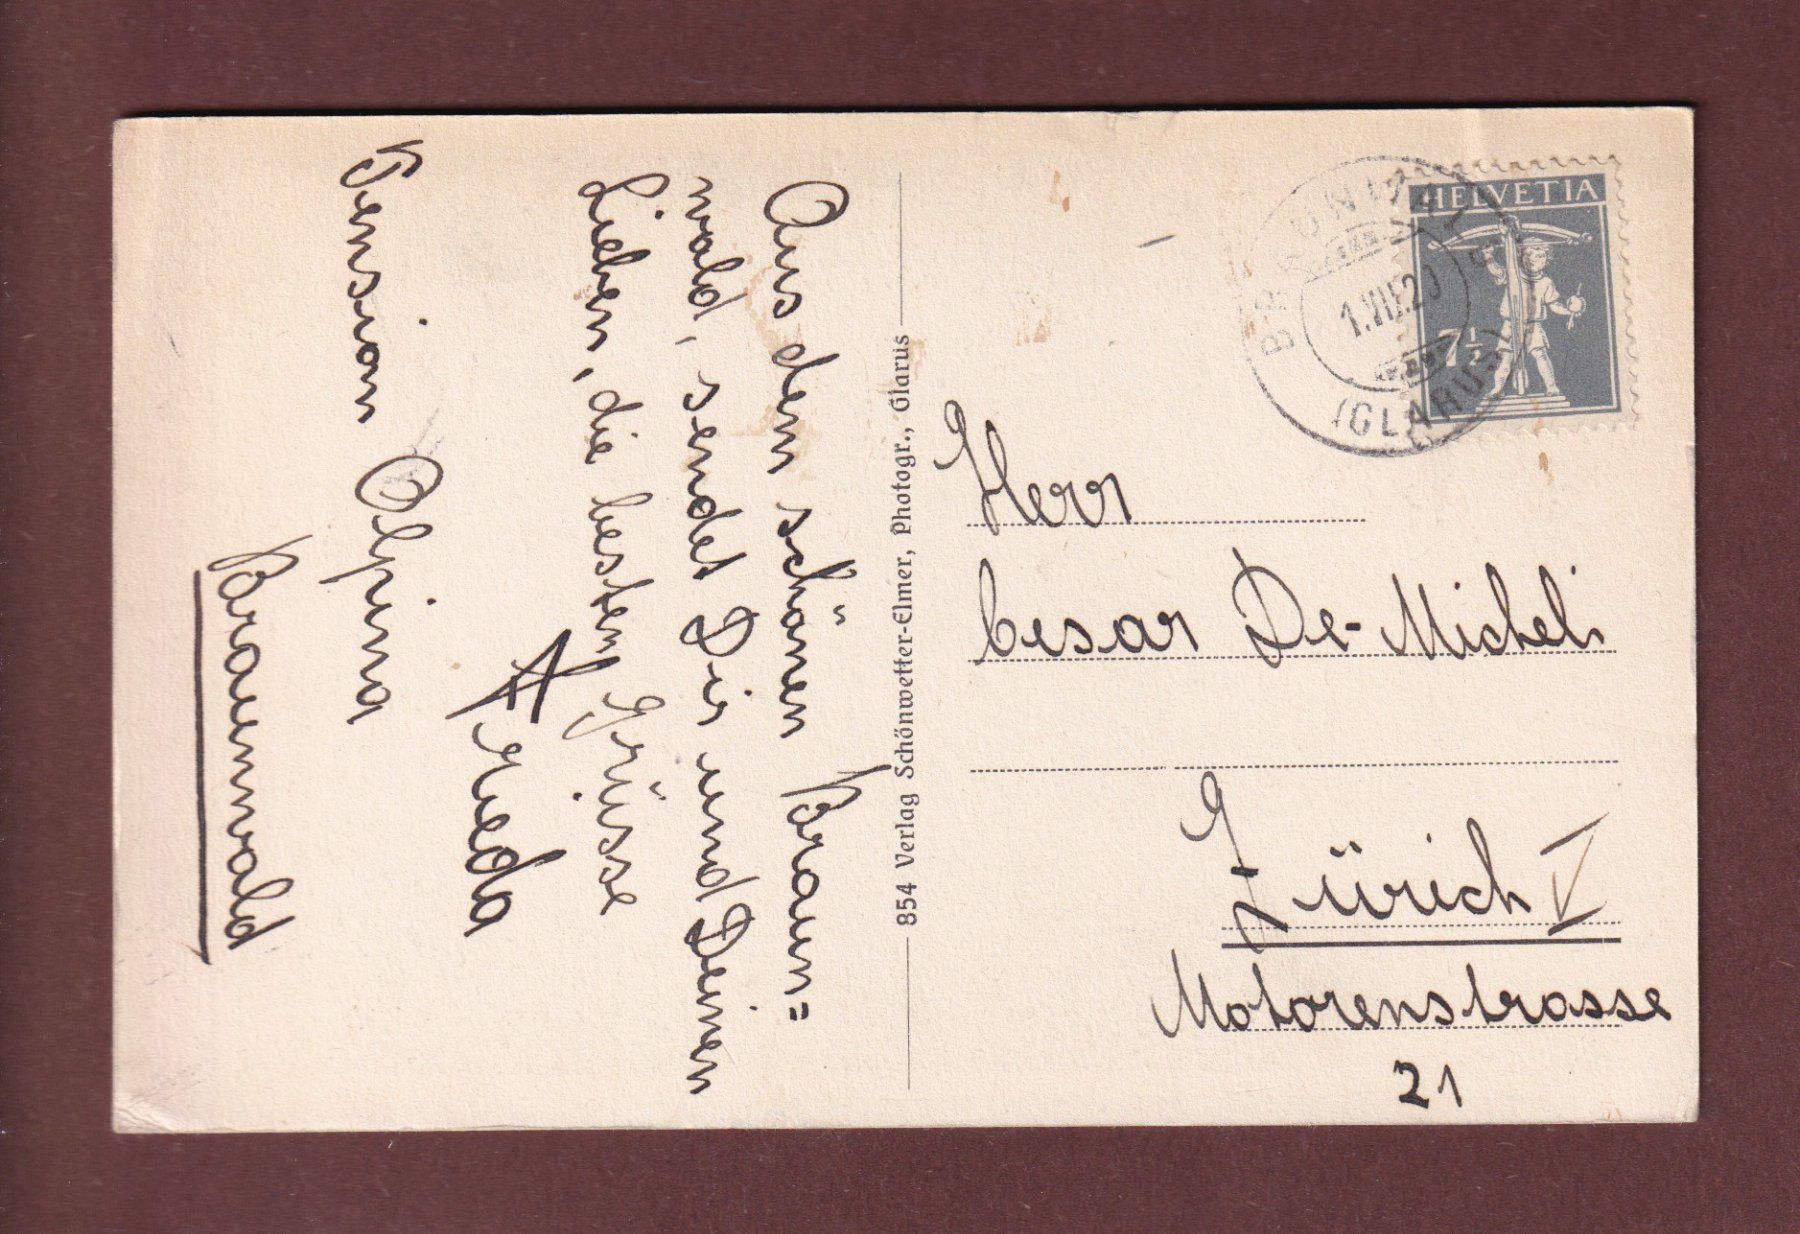 Aus dem schönen Braun=
wald, sendet Dir und Deinen
Lieben, die besten Grüsse
Frieda
Pension Alpina
Braunwald
854 Verlag Schönwetter-Elmer, Photogr., Glarus
HELVETIA
7½
BRAUNWALD
1.VIII.20
(GLARUS)
Herr
Cesar De-Micheli
Zürich V
Motorenstrasse
21